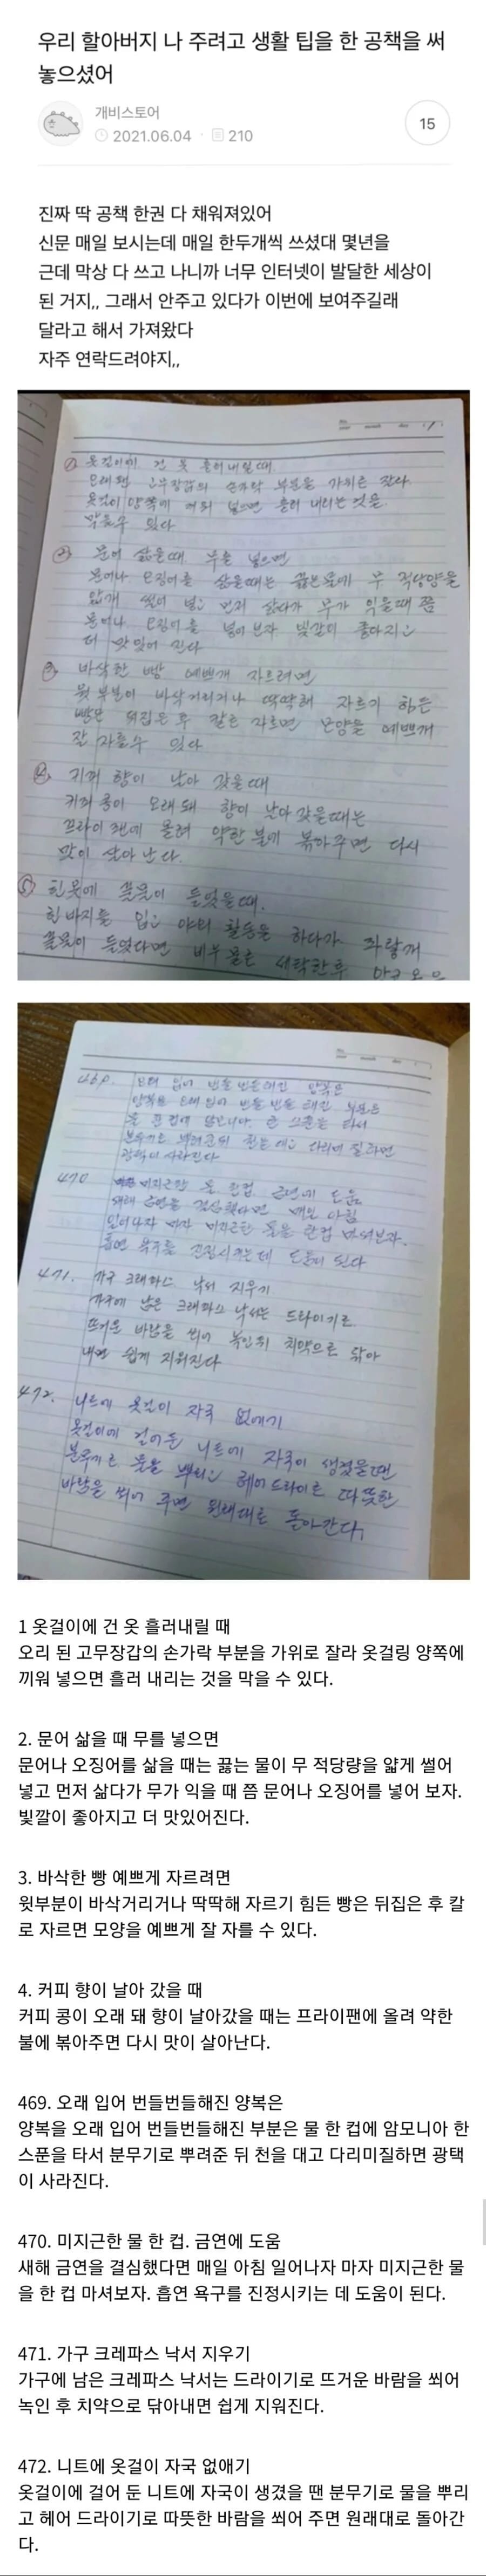 우리 할아버지 나 주려고 생활 팁을 한 공책을 써
놓으셨어
개비스토어
2021.06.04 · 210
15
진짜 딱 공책 한권 다 채워져있어
신문 매일 보시는데 매일 한두개씩 쓰셨대 몇년을
근데 막상 다 쓰고 나니까 너무 인터넷이 발달한 세상이
된 거지,, 그래서 안주고 있다가 이번에 보여주길래
달라고 해서 가져왔다
자주 연락드려야지,,
① 옷걸이에 건 옷 흘러내릴때
오래된 고무장갑의 손가락 부분을 가위로 잘라
옷걸이 양쪽에 끼워 넣으면 흘러 내리는 것을
막을수 있다
② 문어 삶을때 무를 넣으면
문어나 오징어를 삶을때는 끓는물에 무 적당양을
얇게 썰어 넣고 먼저 삶다가 무가 익을때 쯤
문어나 오징어를 넣어 보자 빛갈이 좋아지고
더 맛있어 진다
③ 바삭한 빵 예쁘개 자르려면
윗부분이 바삭거리거나 딱딱해 자르기 힘든
빵은 뒤집은 후 칼로 자르면 모양을 예쁘개
잘 자를수 있다
④ 커피 향이 날아 갔을때
커피 콩이 오래돼 향이 날아 갔을때는
프라이팬에 올려 약한 불에 볶아주면 다시
맛이 살아 난다.
⑤ 흰옷에 풀물이 들었을때.
흰바지를 입고 야외 활동을 하다가 파랗게
풀물이 들었다면 비눗물로 세탁한후
469. 오래 입어 번들번들해진 양복은
양복을 오래 입어 번들 번들 해진 부분은
물 한컵에 암모니아 한 스푼을 타서
분무기로 뿌려준뒤 천을 대고 다리미질하면
광택이 사라진다
470 미지근한 물 한컵. 금연에 도움
새해 금연을 결심했다면 매일 아침
일어나자 마자 미지근한 물을 한컵 마셔보자.
흡연 욕구를 진정시키는데 도움이 된다
471. 가구 크레파스 낙서 지우기
가구에 남은 크레파스 낙서는 드라이기로
뜨거운 바람을 쐬어 녹인뒤 치약으로 닦아
내면 쉽게 지워진다
472. 니트에 옷걸이 자국 없애기
옷걸이에 걸어둔 니트에 자국이 생겼을땐
분무기로 물을 뿌리고 헤어드라이로 따뜻한
바람을 쐬어 주면 원래대로 돌아간다.
1 옷걸이에 건 옷 흘러내릴 때
오리 된 고무장갑의 손가락 부분을 가위로 잘라 옷걸링 양쪽에
끼워 넣으면 흘러 내리는 것을 막을 수 있다.
2. 문어 삶을 때 무를 넣으면
문어나 오징어를 삶을 때는 끓는 물이 무 적당량을 얇게 썰어
넣고 먼저 삶다가 무가 익을 때 쯤 문어나 오징어를 넣어 보자.
빛깔이 좋아지고 더 맛있어진다.
3. 바삭한 빵 예쁘게 자르려면
윗부분이 바삭거리거나 딱딱해 자르기 힘든 빵은 뒤집은 후 칼
로 자르면 모양을 예쁘게 잘 자를 수 있다.
4. 커피 향이 날아 갔을 때
커피 콩이 오래 돼 향이 날아갔을 때는 프라이팬에 올려 약한
불에 볶아주면 다시 맛이 살아난다.
469. 오래 입어 번들번들해진 양복은
양복을 오래 입어 번들번들해진 부분은 물 한 컵에 암모니아 한
스푼을 타서 분무기로 뿌려준 뒤 천을 대고 다리미질하면 광택
이 사라진다.
470. 미지근한 물 한 컵. 금연에 도움
새해 금연을 결심했다면 매일 아침 일어나자 마자 미지근한 물
을 한 컵 마셔보자. 흡연 욕구를 진정시키는 데 도움이 된다.
471. 가구 크레파스 낙서 지우기
가구에 남은 크레파스 낙서는 드라이기로 뜨거운 바람을 쐬어
녹인 후 치약으로 닦아내면 쉽게 지워진다.
472. 니트에 옷걸이 자국 없애기
옷걸이에 걸어 둔 니트에 자국이 생겼을 땐 분무기로 물을 뿌리
고 헤어 드라이기로 따뜻한 바람을 쐬어 주면 원래대로 돌아간
다.